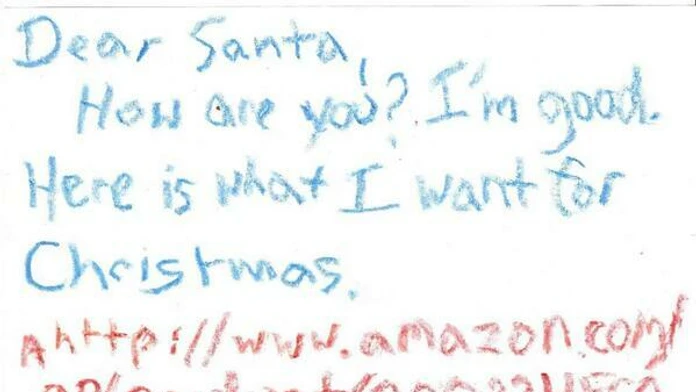 Dear Santa,
How are you? I'm good.
Here is what I want for
Christmas.
A http://www.amazon.com/